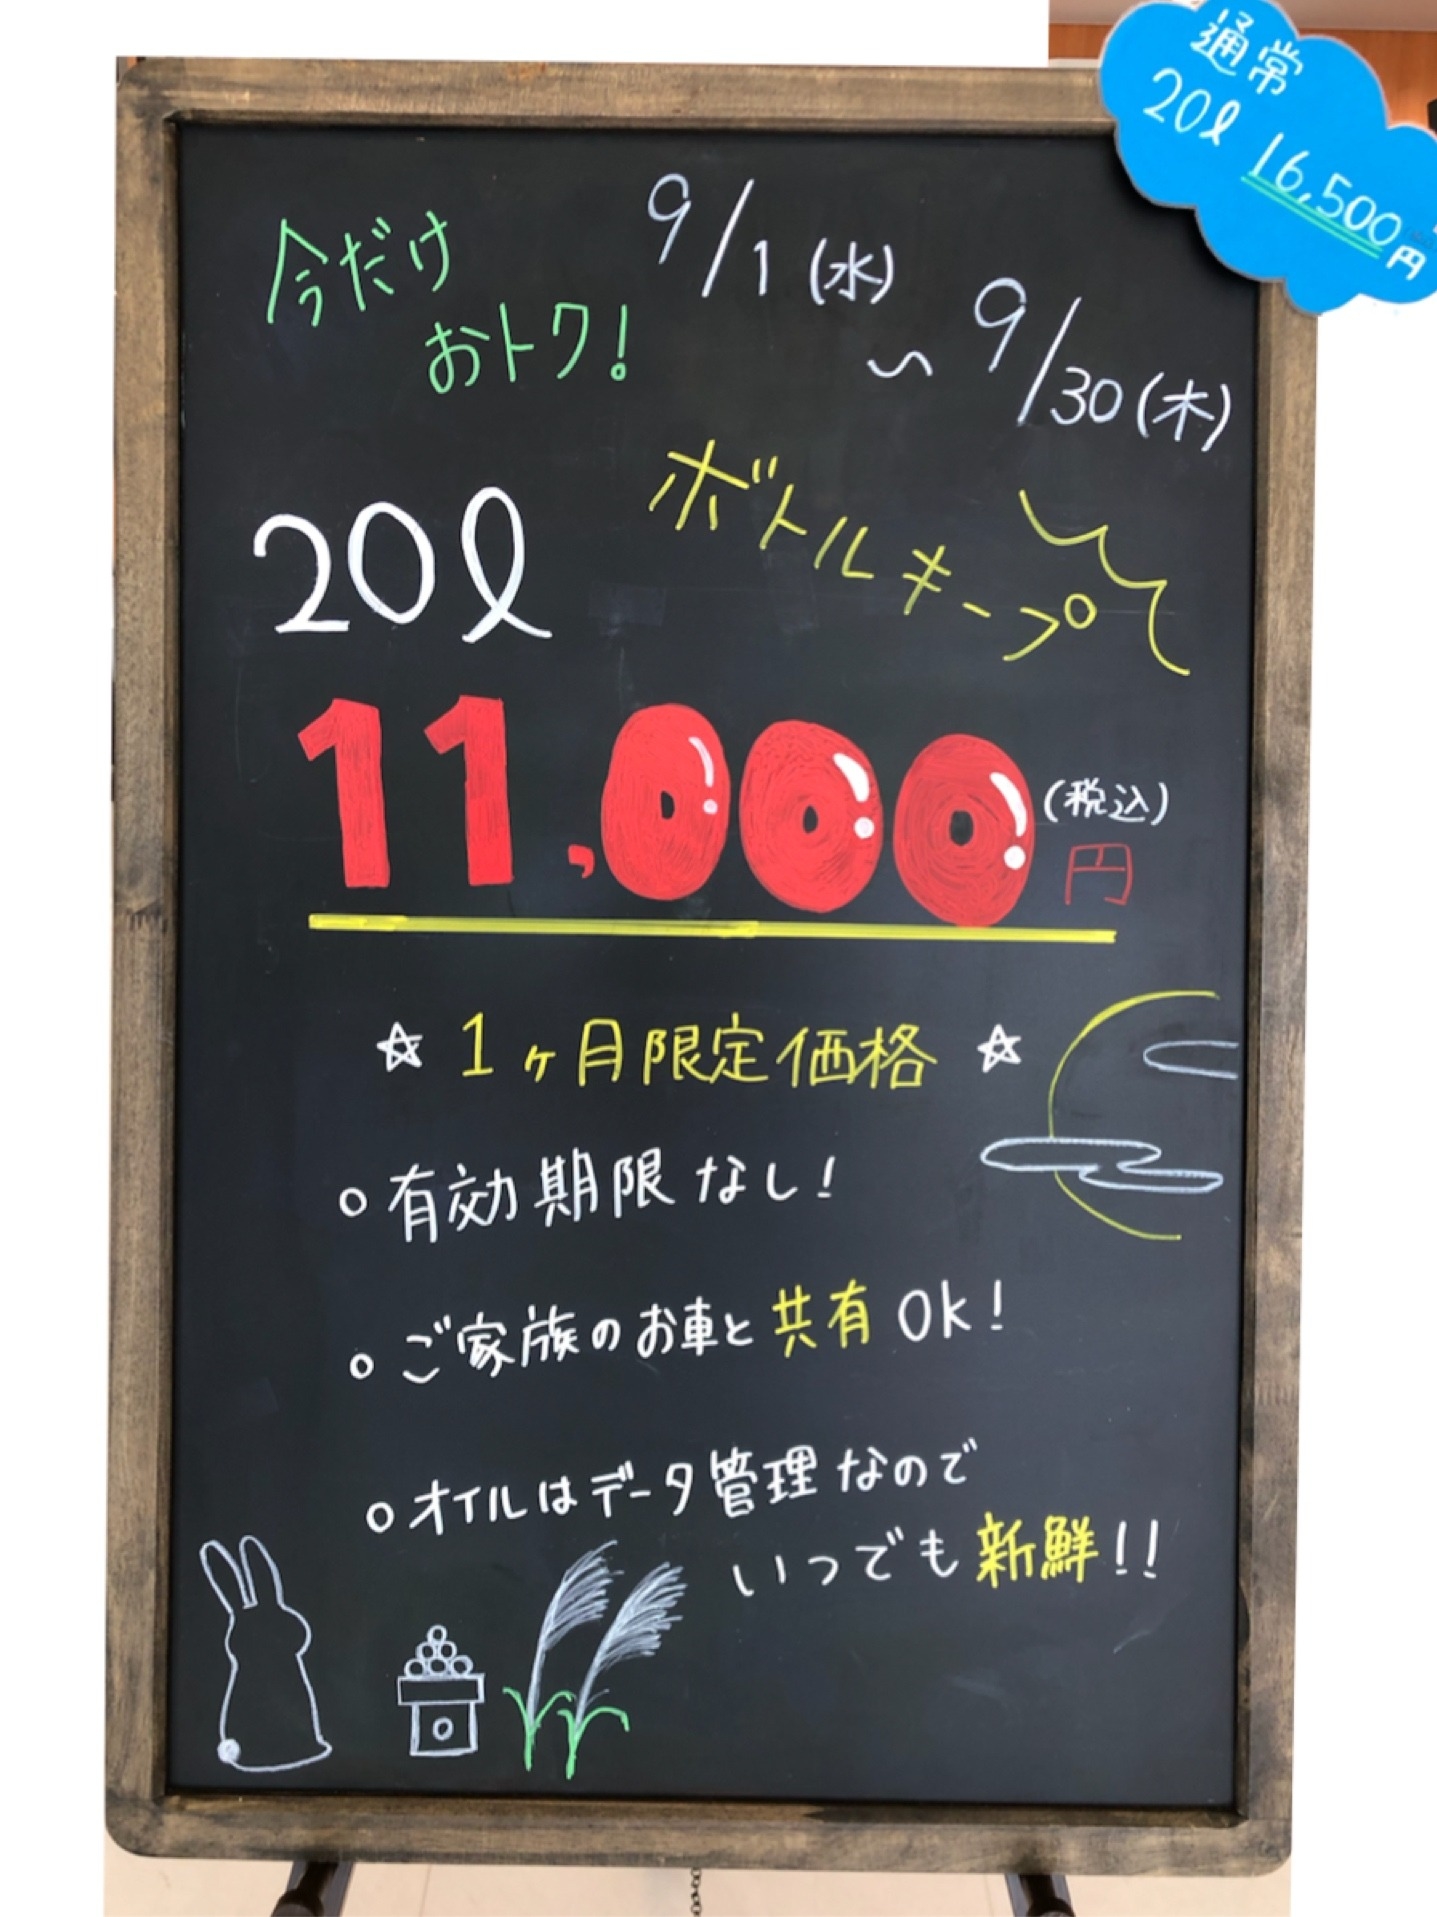 通常
20ℓ 16,500円
今だけ
おトク!
9/1(水)
~9/30(木)
ボトルキープ
20ℓ
11,000円(税込)
☆ 1ヶ月限定価格 ☆
○ 有効期限なし!
○ ご家族のお車と共有OK!
○ オイルはデータ管理なので
いつでも新鮮!!